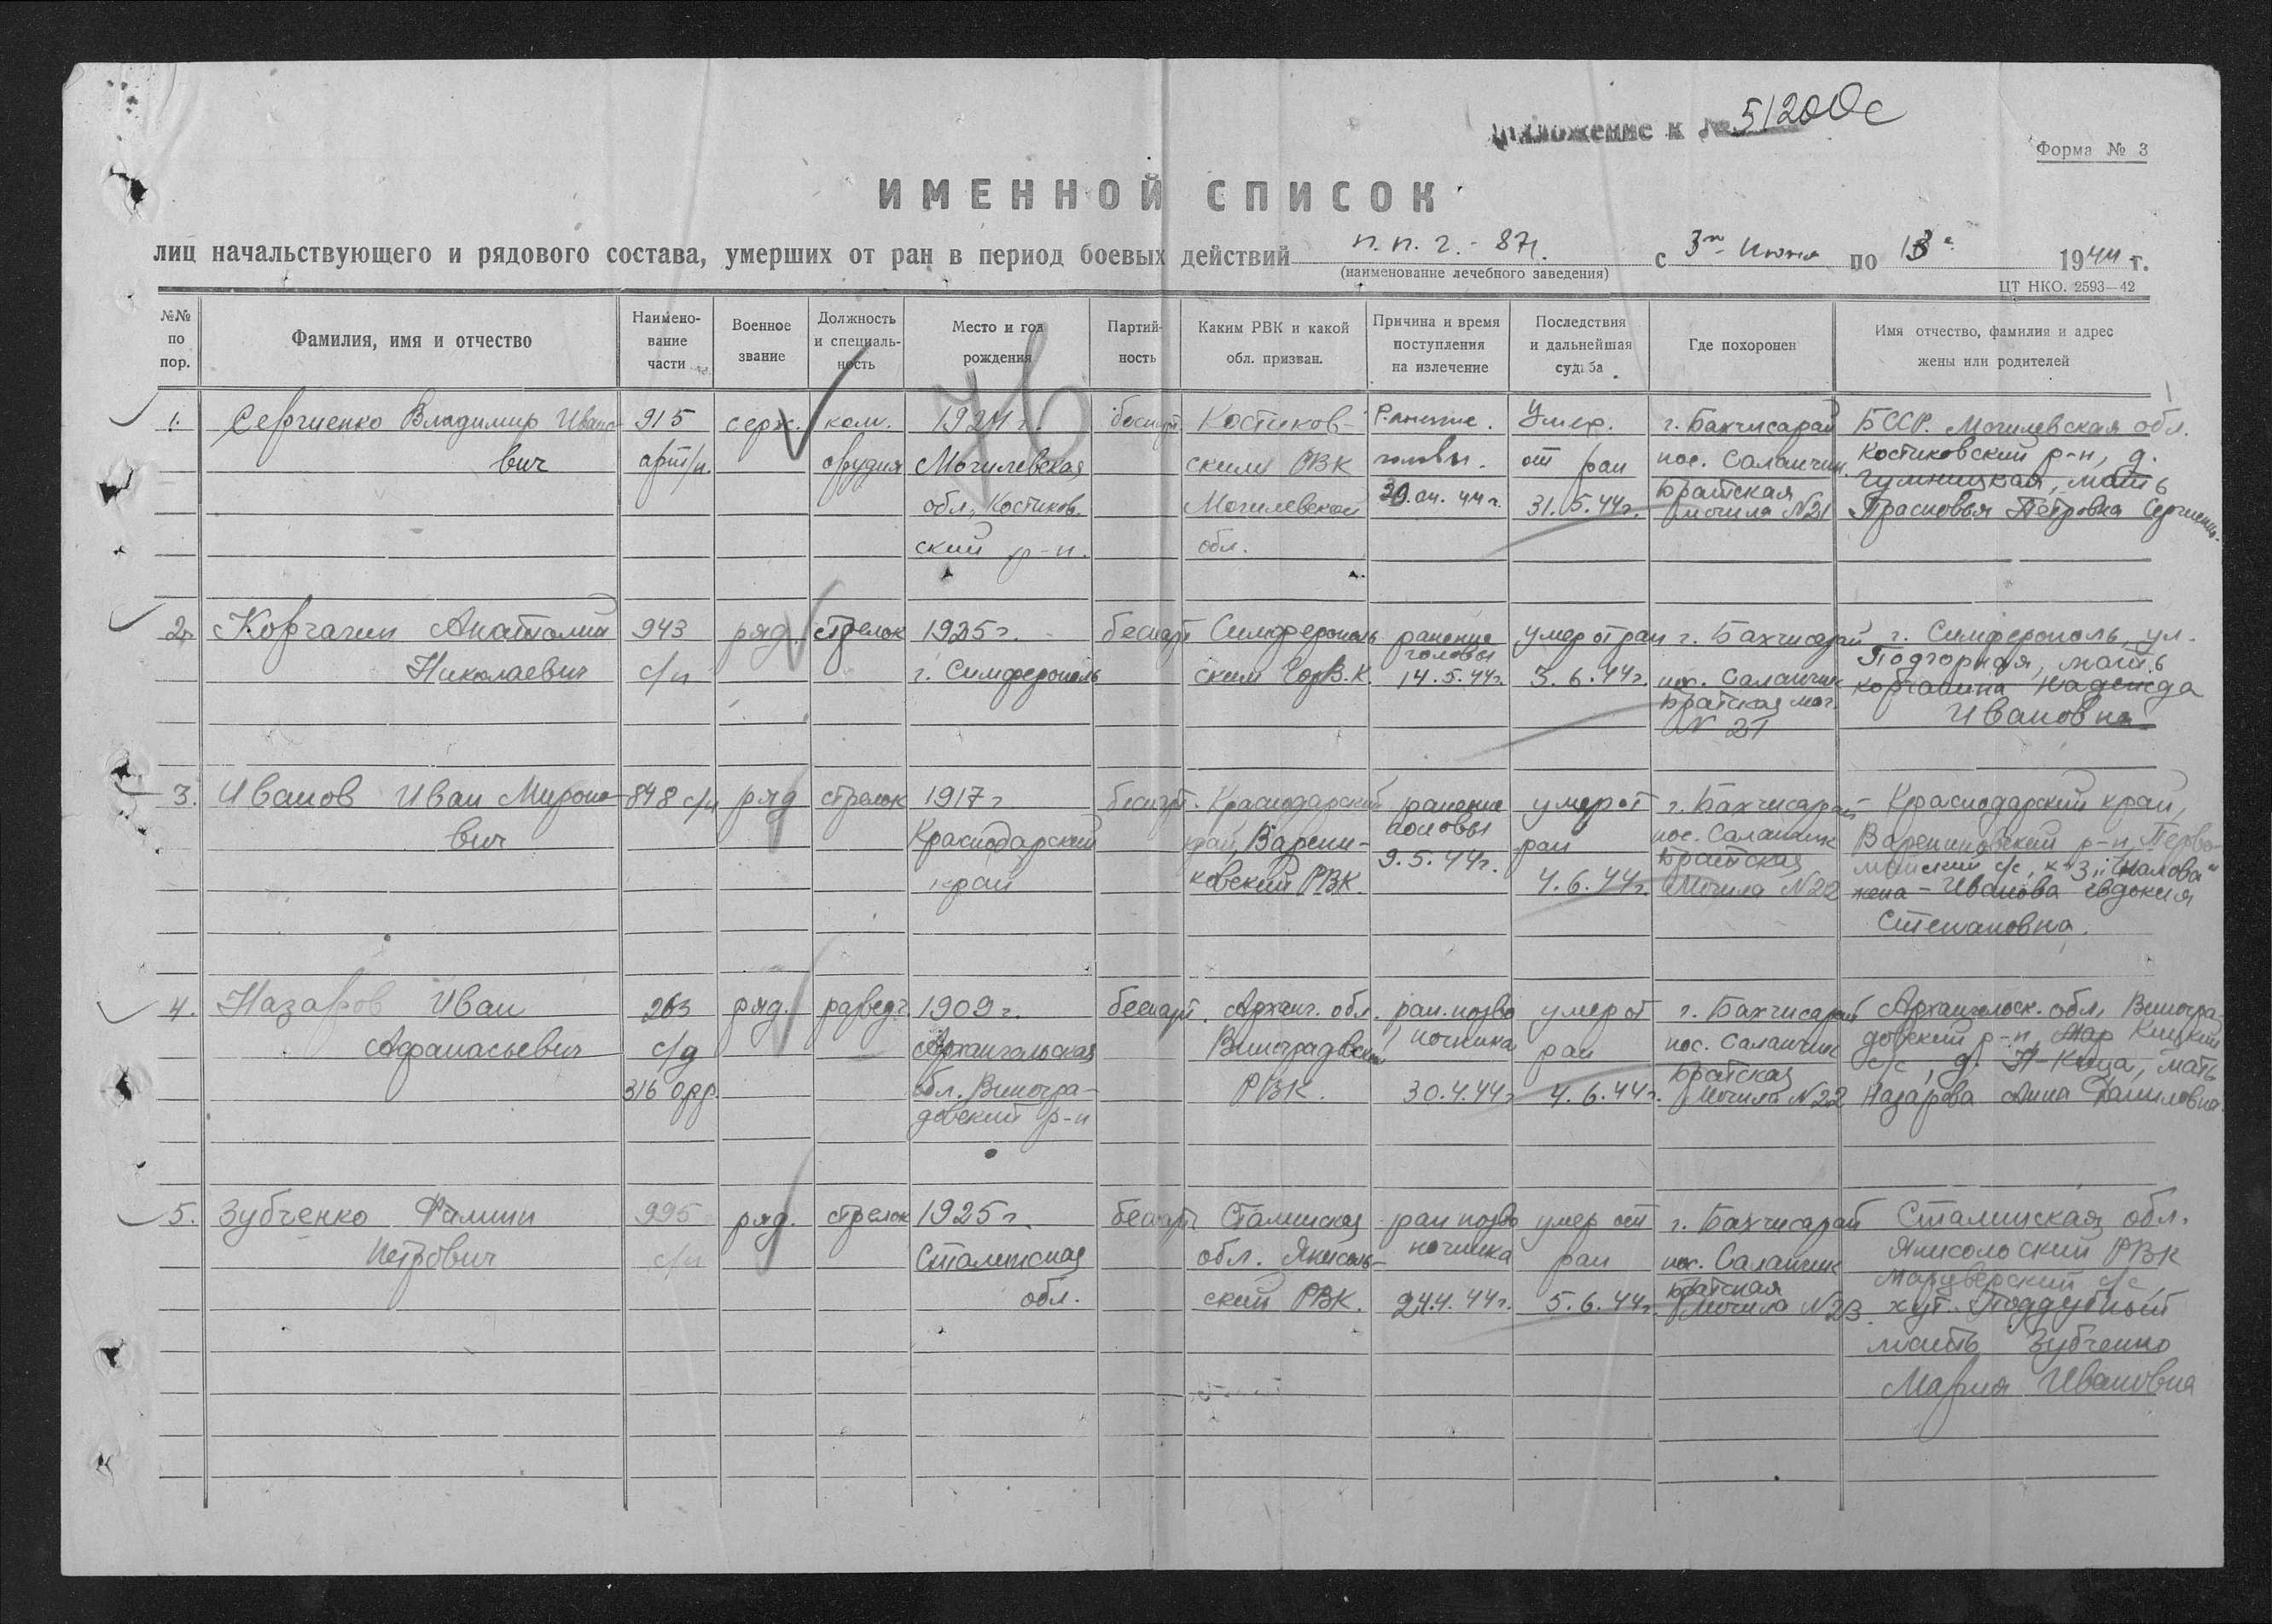 Приложение к № 51200с
Форма № 3
ИМЕННОЙ СПИСОК
лиц начальствующего и рядового состава, умерших от ран в период боевых действий п.п.г. - 871. с 3го Июня по 13е 1944 г.
(наименование лечебного заведения)
ЦТ НКО. 2593—42
№№ по пор.
Фамилия, имя и отчество
Наимено-вание части
Военное звание
Должность и специаль-ность
Место и год рождения
Партий-ность
Каким РВК и какой обл. призван.
Причина и время поступления на излечение
Последствия и дальнейшая судьба
Где похоронен
Имя отчество, фамилия и адрес жены или родителей
76
1. Сергиенко Владимир Ивано- 915 серж. ком. 1924 г. беспарт Костиков- Ранение Умер. г. Бахчисарай БССР. Могилевская обл.
вич арт/п. орудия Могилевская ским РВК головы. от ран пос. Салачик. Костиковский р-н, д.
обл. Костиков. Могилевской 30.04.44г. 31.5.44г. Братская могила N21 мать
ский р-н. обл. Прасковья Петровна Сергиенко.
2. Корчагин Анатолий 943 ряд. стрелок 1925 г. беспарт Симферополь- ранение умер от ран г. Бахчисарай г. Симферополь ул.
Николаевич с/п г. Симферополь ским ГорВ.К. головы 14.5.44г. 3.6.44г. пос. Салачик Подгорная, мать
Братская мог. Надежда
N 21 Ивановна
3. Иванов Иван Мироно- 848 с/п ряд стрелок 1917 г беспарт. Краснодарский ранение умер от г. Бахчисарай Краснодарский край,
вич Краснодарский край, Варени- головы ран пос. Салачик Варениковский р-н, Перво-
край ковский РВК. 9.5.44г. 4.6.44г. Братская Могила N22 майский с/с, к-з
жена - Иванова Евдокия
Степановна.
4. Назаров Иван 263 ряд. развед. 1909 г. беспарт. Арханг. обл. ран. позво умер от г. Бахчисарай Архангельск. обл. Виногра-
Афанасьевич с/д Архангельская Виноградовск. ночника ран пос. Салачик довский р-н, Кицкий
316 орр. обл. Виногра- РВК. 30.4.44г 4.6.44г. Братская с/с, д. Кица, мать
довский р-н Могила N22 Назарова Анна
5. Зубченко 995 ряд. стрелок 1925 г. беспарт Сталинская ран позво умер от г. Бахчисарай Сталинская обл.
Петрович с/п Сталинская обл. Янисоль- ночника ран пос. Салачик Янисольский РВК
обл. ский РВК. 24.4.44г. 5.6.44г. Братская Могила N23. с/с,
хут. Поддубный
мать Зубченко
Мария Ивановна